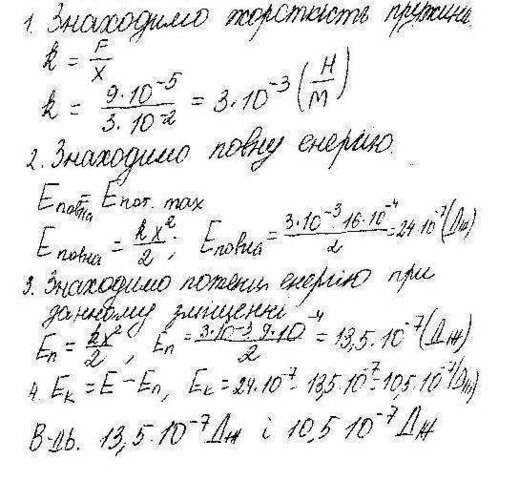 1. Знаходимо жорсткість пружини.
k = F/x
k = 9·10⁻⁵/3·10⁻² = 3·10⁻³ (Н/м)
2. Знаходимо повну енергію.
Eповна = Eпот. max
Eповна = kx²/2; Eповна = 3·10⁻³·16·10⁻⁴/2 = 24·10⁻⁷ (Дж)
3. Знаходимо потенц. енергію при
данному зміщенні
Eп = kx²/2, Eп = 3·10⁻³·9·10⁻⁴/2 = 13,5·10⁻⁷ (Дж)
4. Eк = E − Eп, Eк = 24·10⁻⁷ − 13,5·10⁻⁷ = 10,5·10⁻⁷ (Дж)
В-дь. 13,5·10⁻⁷ Дж і 10,5 10⁻⁷ Дж